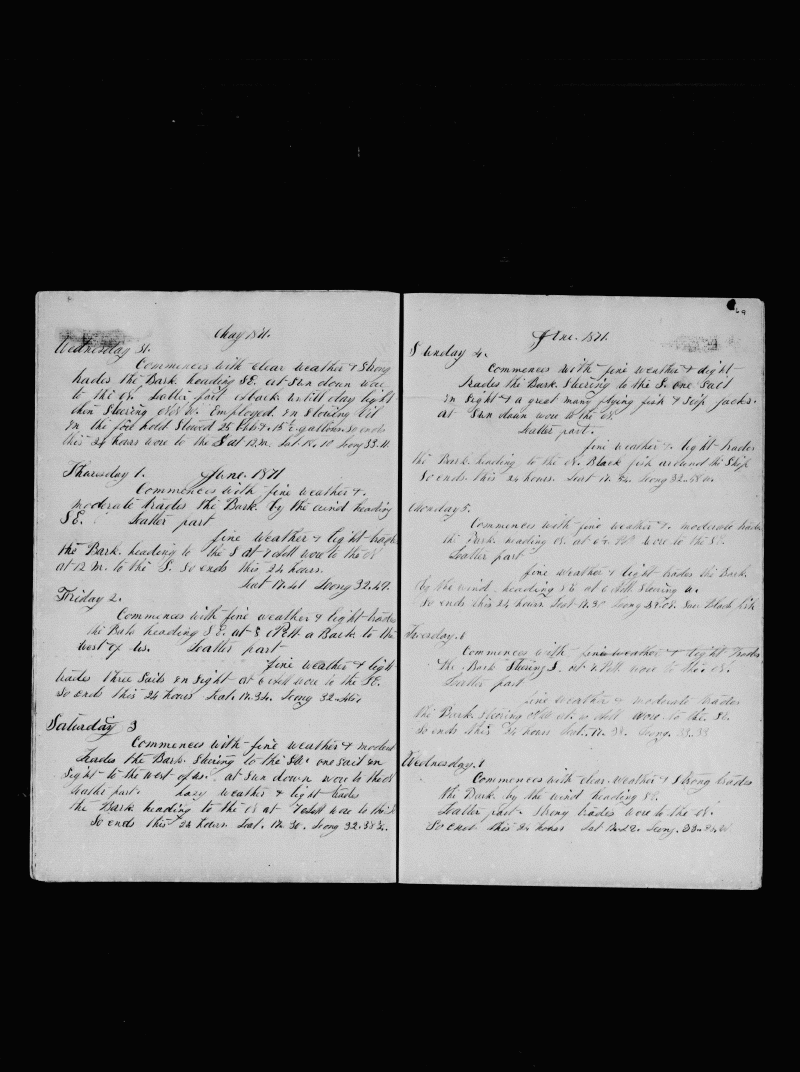 May 1871.
Wednesday 31.
Commences with clear weather & Strong
trades the Bark heading SE. at Sun down wore
to the N. Latter part Black till day light
then Stering Employed in Stowing Oil
in the fore hold Stowed 25 gallons. so ends
this 24 hours wore to the S at 12 m. Lat. Long 33.11
Thursday 1. June. 1871
Commences with fine weather &
moderate trades the Bark. by the wind heading
SE. Latter part
fine weather & light trades
the Bark. heading to the S at AM wore to the N
at 12 M. to the S. So ends this 24 hours.
Lat 17.41 Long 32.49.
Friday 2.
Commences with fine weather & light trades
the Bark heading S E. at PM a Bark. to the
west of us. Latter part
fine weather & light
trades three Sails in Sight at 6 AM wore to the SE.
So ends this 24 hours Lat. 17.34. Long 32.
Saturday 3
Commences with fine weather & moderat
trades the Bark Stering to the SE. one sail in
Sight to the west of us. at Sun down wore to the N
Latter part. hazy weather & light trades
the Bark heading to the N at 7 AM wore to the S.
So ends this 24 hours. Lat. 17.30. Long 32.
June. 1871.
Sunday 4.
Commences with fine weather & light
trades the Bark Stering to the S. one Sail
in Sight & a great many flying fish & Skip jacks.
at Sun down wore to the N
Latter part.
fine weather & light trades
the Bark. heading to the N. Black fish around the Ship
So ends this 24 hours. Lat 17. Long 32.
Monday 5.
Commences with fine weather & moderate trades
the Bark heading N. at PM wore to the SE.
Latter part
fine weather & light trades the Bark.
by the wind heading S E at 6 AM Stering
So ends this 24 hours Lat 17.30 Long Saw Black fish
Tuesday. 6
Commences with fine weather & light trades
the Bark Stering S. at PM wore to the N.
Latter part
fine weather & moderate trades
the Bark. Stering AM wore to the SE.
So ends this 24 hours Lat. 17. Long. 33.33
Wednesday. 7
Commences with clear weather & Strong trades
the Bark by the wind heading SE.
Latter part. Strong trades wore to the N.
So ends this 24 hours Lat Long. 33.